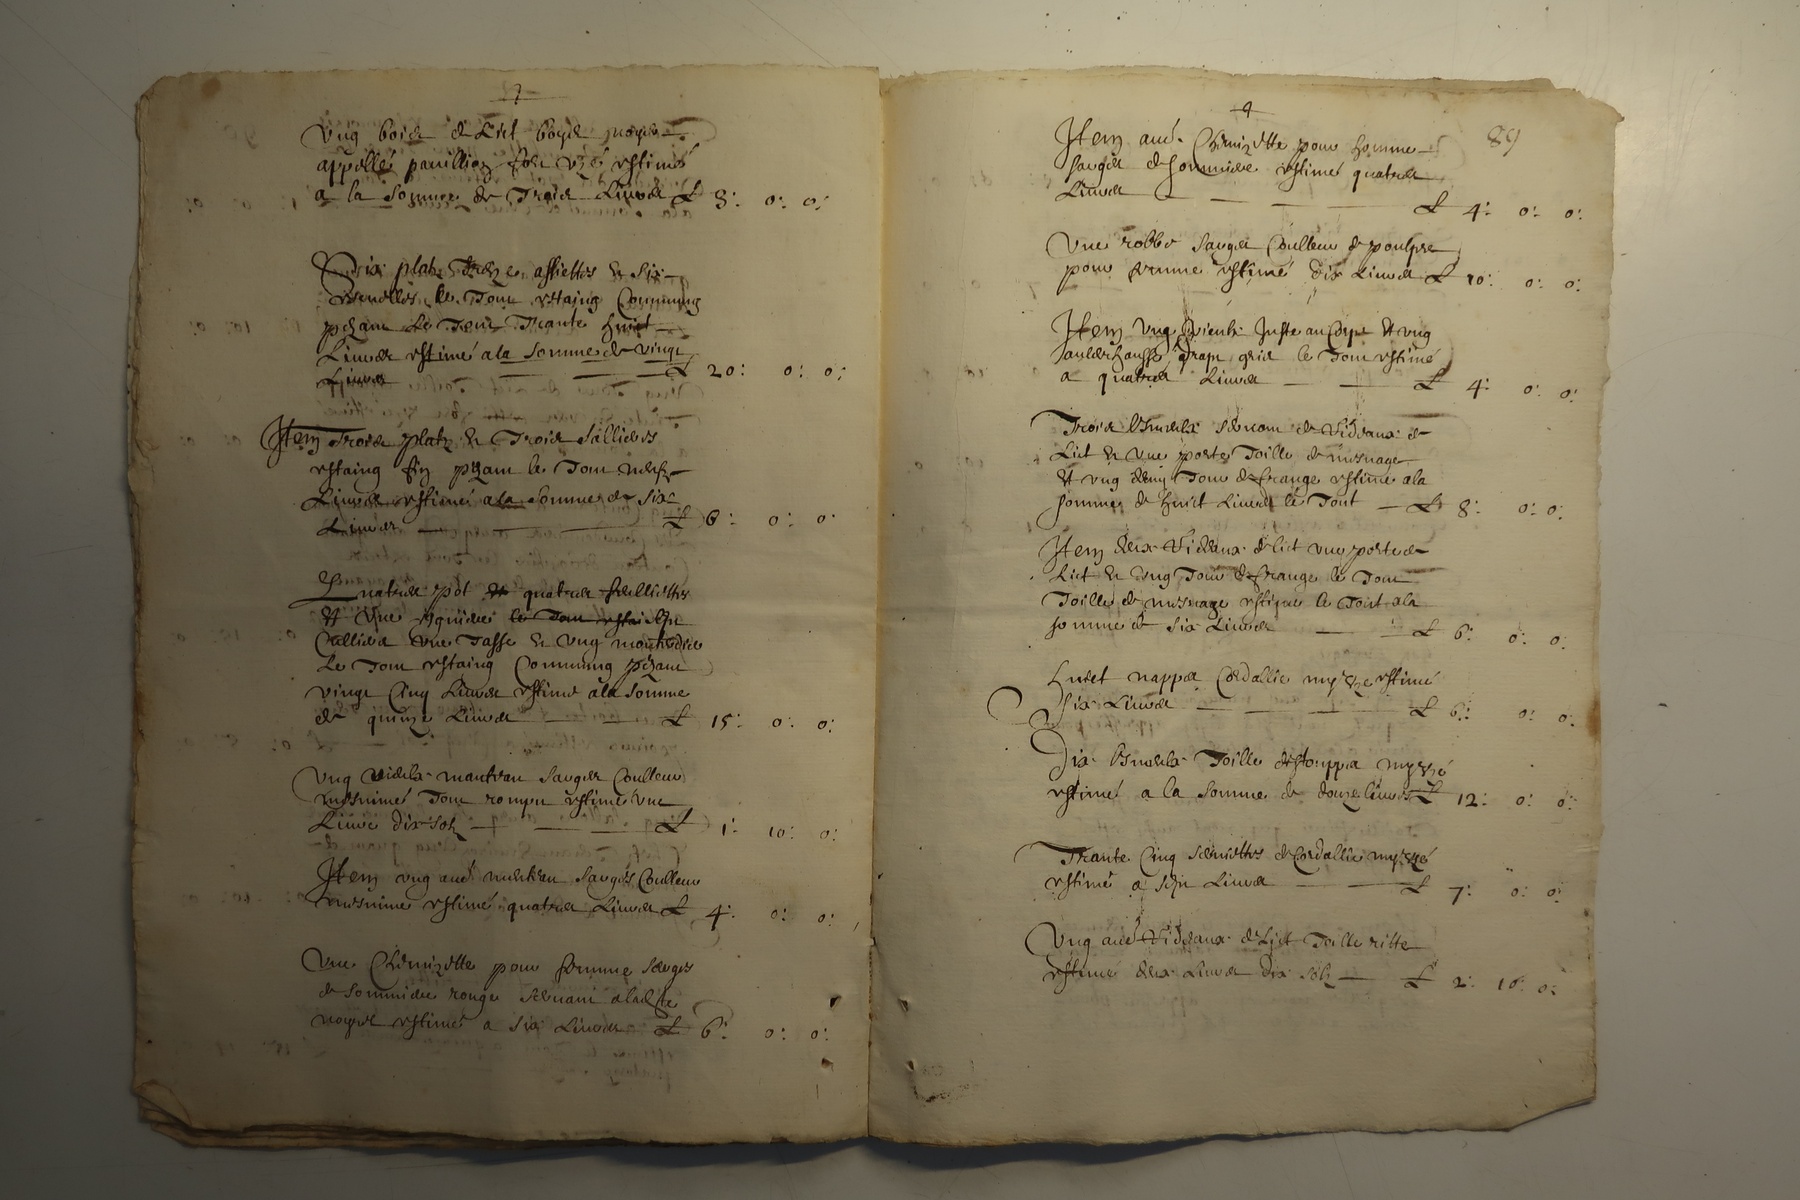 Ung bois de Lict boys noyer
appellé pavillion fort uzé estimé
a la Somme de Trois Livres £ 3: 0: 0:
Dix platz Treze assiettes & Six
escuelles le Tout estaing Commung
pezant Le Tout Trante huict
Livres estimé a la Somme de vingt
Livres £ 20: 0: 0:
Item Trois platz & Trois Sallieres
estaing fin pezant le Tout neuf
Livres estimé a la Somme de Six
Livres £ 6: 0: 0:
Quatre pot quatre feulliettes
et Une eguiere le Tout estaing
une Tasse & ung moutardie
Le Tout estaing Commung pezant
vingt Cinq Livres estimé a la Somme
de quinze Livres £ 15: 0: 0:
Ung vieulx manteau Sarges Coulleur
minime Tout rompu estimé une
Livre dix solz £ 1: 10: 0:
Item ung aut. manteau Sarges Coulleur
minime estimé quatre Livres £ 4: 0: 0:
Une Chemizette pour homme Sarges
de Sommiere rouge Servant a ladite
estimé a Six Livres £ 6: 0: 0:
9
89
Item aut. Chemizette pour homme
Sarges de Sommiere estimé quatre
Livres £ 4: 0: 0:
Une robbe Sarges Coulleur de poulpre
pour femme estimé dix Livres £ 10: 0: 0:
Item Ung Juste au Corps et ung
hault de Chausse drap gris le Tout estimé
a quatre Livres £ 4: 0: 0:
Trois Linseulx Servant de Rideaux de
Lict & une porte Toille de mesnage
et ung demy Tour de frange estimé a la
somme de huict Livres le Tout £ 8: 0: 0:
Item deux Rideaux de lict une porte de
Lict & Ung Tour de frange le Tout
Toille de mesnage estimé le Tout a la
Somme de Six Livres £ 6: 0: 0:
Huict nappes Cordallie my uze estimé
Six Livres £ 6: 0: 0:
Dix Linseulx Toille destouppes my uzé
estimé a la Somme de douze livres £ 12: 0: 0:
Trante Cinq Serviettes de Cordallie my uzé
estimé a Sept Livres £ 7: 0: 0:
Ung aut. Rideaux de Lict Toille ritte
estimé deux Livres dix Solz £ 2: 10: 0: